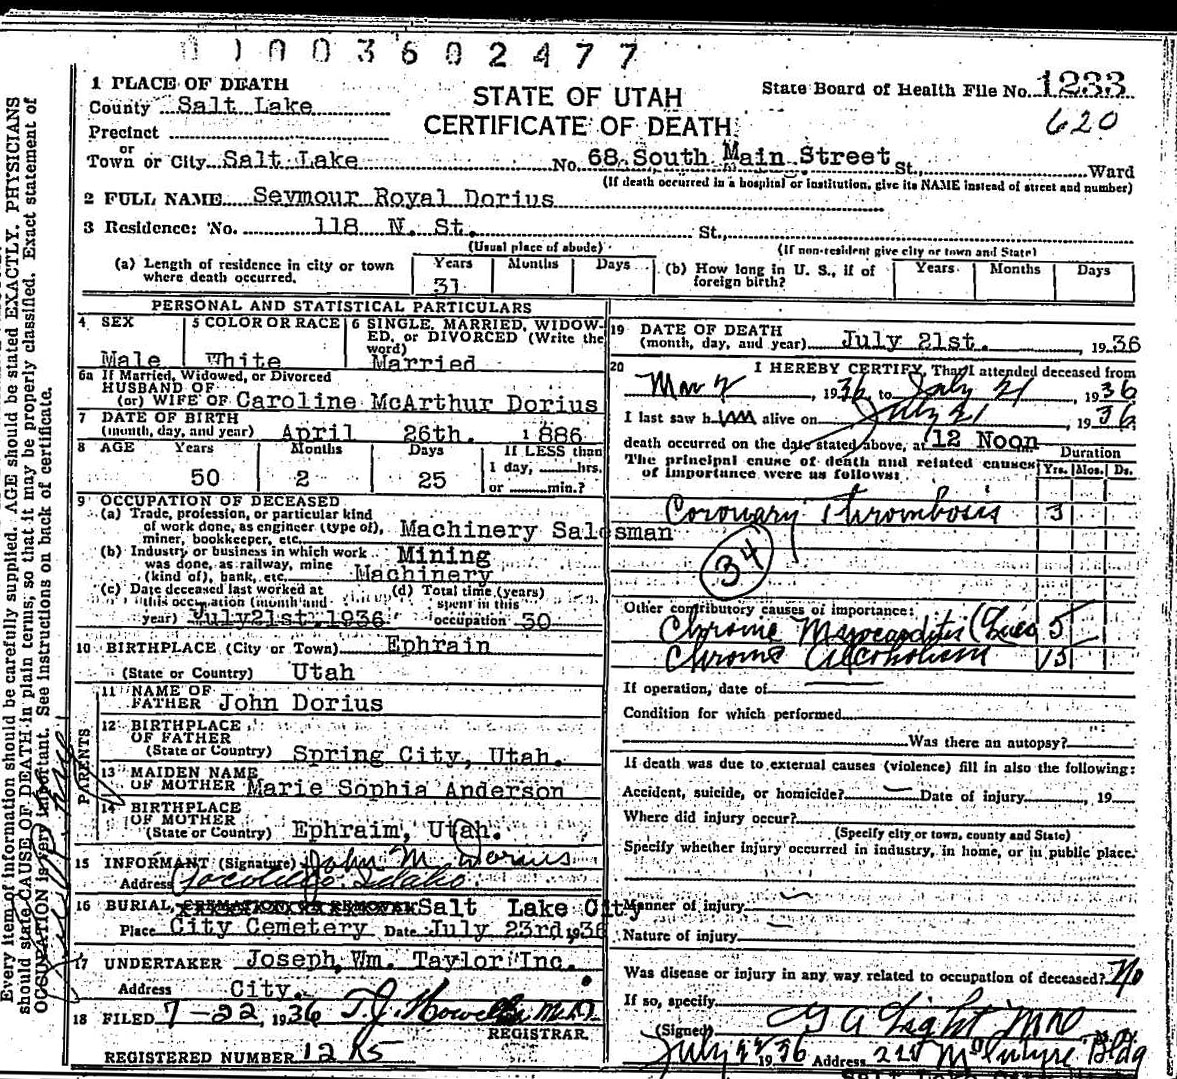 0 1 0 0 3 6 0 2 4 7 7
1 PLACE OF DEATH
County Salt Lake
Precinct
or
Town or City Salt Lake
STATE OF UTAH
CERTIFICATE OF DEATH
State Board of Health File No. 1233
620
No. 68 South Main Street St., Ward
(If death occurred in a hospital or institution, give its NAME instead of street and number)
2 FULL NAME Seymour Royal Dorius
3 Residence: No. 118 N. St. St.,
(Usual place of abode) (If non-resident give city or town and State)
(a) Length of residence in city or town where death occurred. Years 31 Months Days
(b) How long in U. S., if of foreign birth? Years Months Days
PERSONAL AND STATISTICAL PARTICULARS
4 SEX
Male
5 COLOR OR RACE
White
6 SINGLE, MARRIED, WIDOWED, or DIVORCED (Write the word)
Married
6a If Married, Widowed, or Divorced
HUSBAND OF
(or) WIFE OF Caroline McArthur Dorius
7 DATE OF BIRTH
(month, day, and year) April 26th. 1886
8 AGE Years Months Days If LESS than
50 2 25 1 day, hrs.
or min.?
9 OCCUPATION OF DECEASED
(a) Trade, profession, or particular kind
of work done, as engineer (type of),
miner, bookkeeper, etc. Machinery Salesman
(b) Industry or business in which work
was done, as railway, mine
(kind of), bank, etc. Mining Machinery
(c) Date deceased last worked at
this occupation (month and
year) July 21st. 1936
(d) Total time (years)
spent in this
occupation 30
10 BIRTHPLACE (City or Town) Ephrain
(State or Country) Utah
PARENTS
11 NAME OF
FATHER John Dorius
12 BIRTHPLACE
OF FATHER
(State or Country) Spring City, Utah.
13 MAIDEN NAME
OF MOTHER Marie Sophia Anderson
14 BIRTHPLACE
OF MOTHER
(State or Country) Ephraim, Utah.
15 INFORMANT (Signature) John M. Dorius
Address Pocatello Idaho.
16 BURIAL, CREMATION OR REMOVAL Salt Lake City
Place City Cemetery Date July 23rd, 1936
17 UNDERTAKER Joseph Wm. Taylor Inc.
Address City.
18 FILED 7-22, 1936 T.J. Howells M.D.
REGISTRAR.
REGISTERED NUMBER 1285
19 DATE OF DEATH
(month, day, and year) July 21st. , 1936
20 I HEREBY CERTIFY, That I attended deceased from
Mar 2 , 1936, to July 21 , 1936
I last saw h im alive on July 21 , 1936
death occurred on the date stated above, at 12 Noon
The principal cause of death and related causes
of importance were as follows:
Duration
Yrs. Mos. Ds.
Coronary Thrombosis 3
34
Other contributory causes of importance:
Chronic Myocarditis (Lues 5
Chronic Alcoholism 15
If operation, date of
Condition for which performed
Was there an autopsy?
If death was due to external causes (violence) fill in also the following:
Accident, suicide, or homicide? Date of injury , 19
Where did injury occur?
(Specify city or town, county and State)
Specify whether injury occurred in industry, in home, or in public place.
Manner of injury
Nature of injury
Was disease or injury in any way related to occupation of deceased? No
If so, specify
(Signed) G A Light MD
July 22 1936 Address McIntyre Bldg
Every item of information should be carefully supplied. AGE should be stated EXACTLY. PHYSICIANS
should state CAUSE OF DEATH in plain terms, so that it may be properly classified. Exact statement of
OCCUPATION is very important. See instructions on back of certificate.